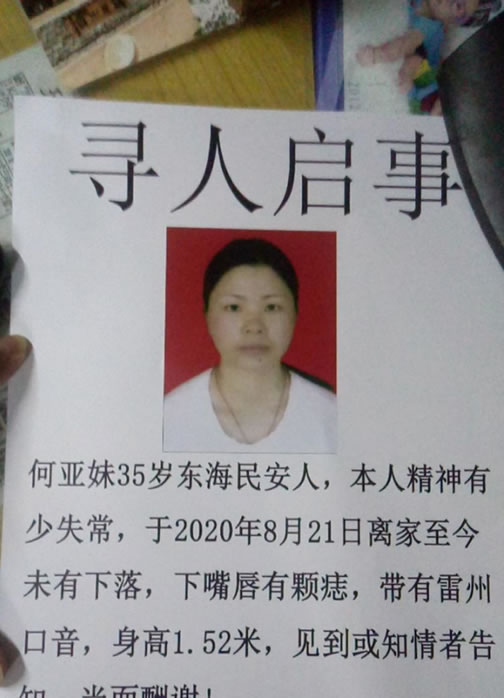 寻人启事
何亚妹35岁东海民安人，本人精神有
少失常，于2020年8月21日离家至今
未有下落，下嘴唇有颗痣，带有雷州
口音，身高1.52米，见到或知情者告
知，当面酬谢！
2012